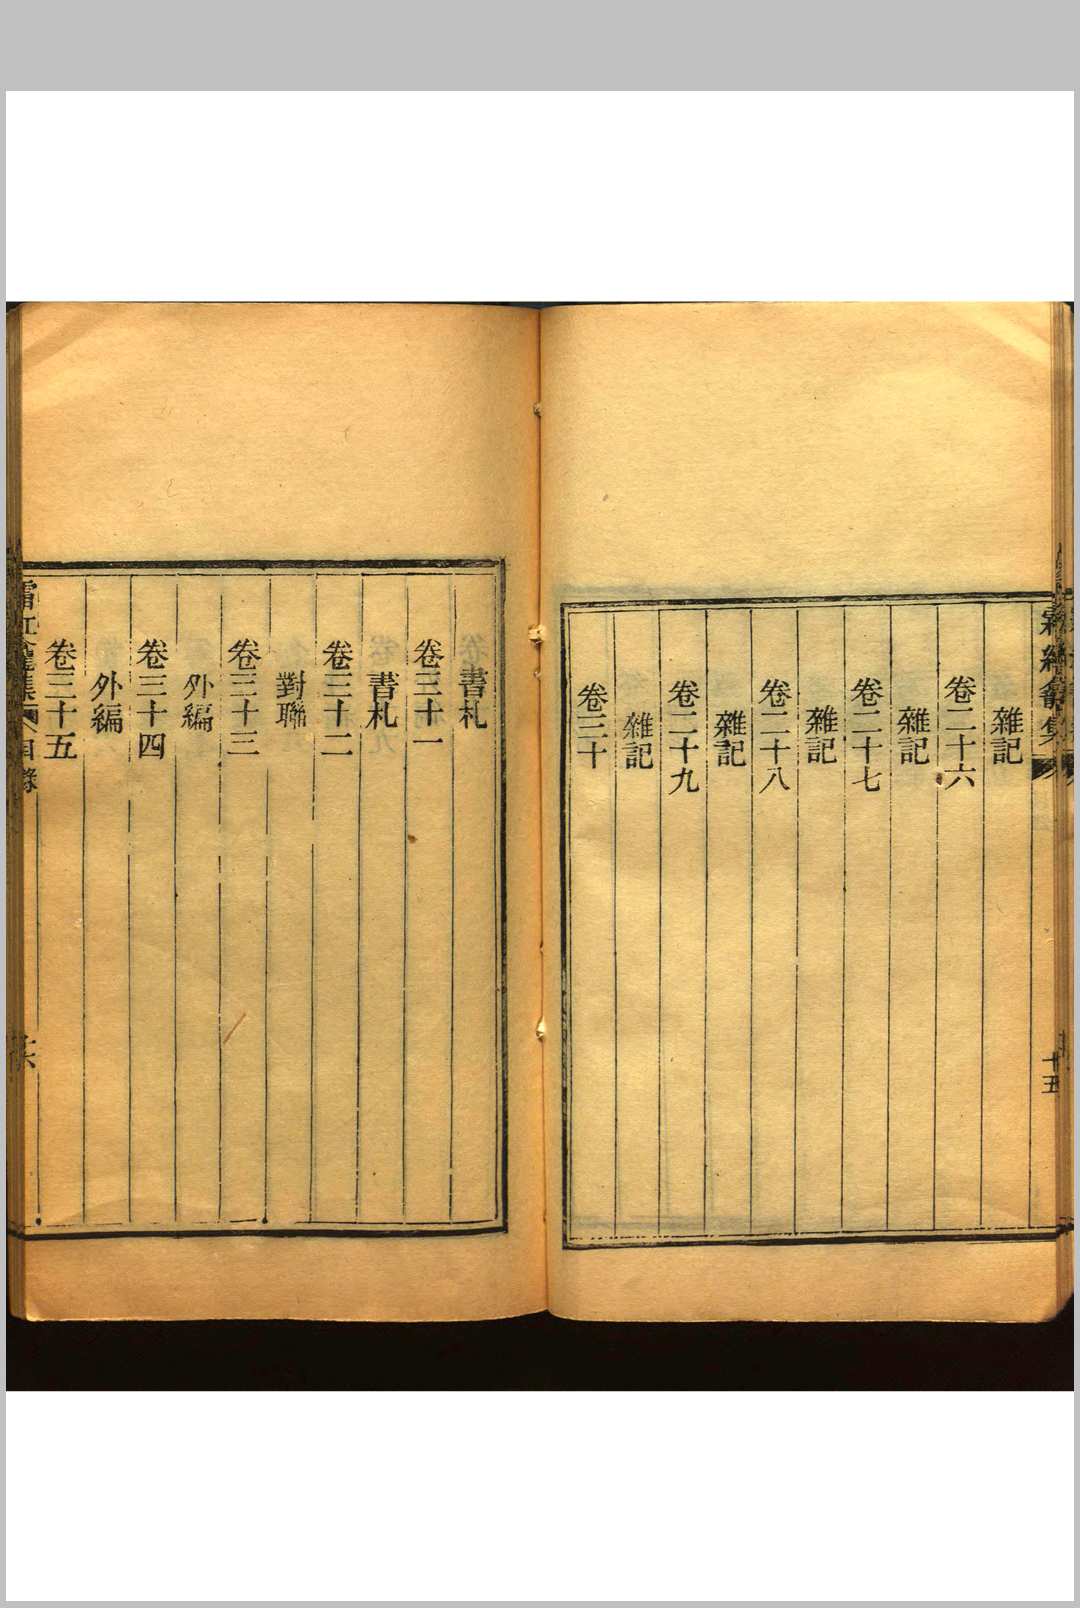 雜記
卷二十六
雜記
卷二十七
雜記
卷二十八
雜記
卷二十九
雜記
卷三十
十五
書札
卷三十一
書札
卷三十二
對聯
卷三十三
外編
卷三十四
外編
卷三十五
目錄